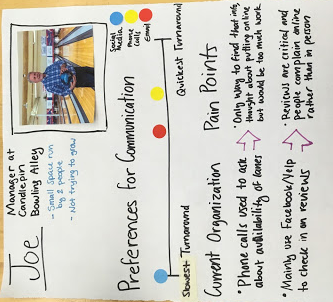 Joe
Manager at
Candlepin
Bowling Alley
- Small space run
by 2 people
- Not trying to grow
Preferences for Communication
Social
Media
Phone
Calls
Email
Slowest Turnaround
Quickest Turnaround
Current Organization
• Phone calls used to ask
about availability of lanes
• Mainly use Facebook/Yelp
to check in on reviews
Pain Points
• Only way to find that info,
thought about putting online
but would be too much work
• Reviews are critical and
people complain online
rather than in person